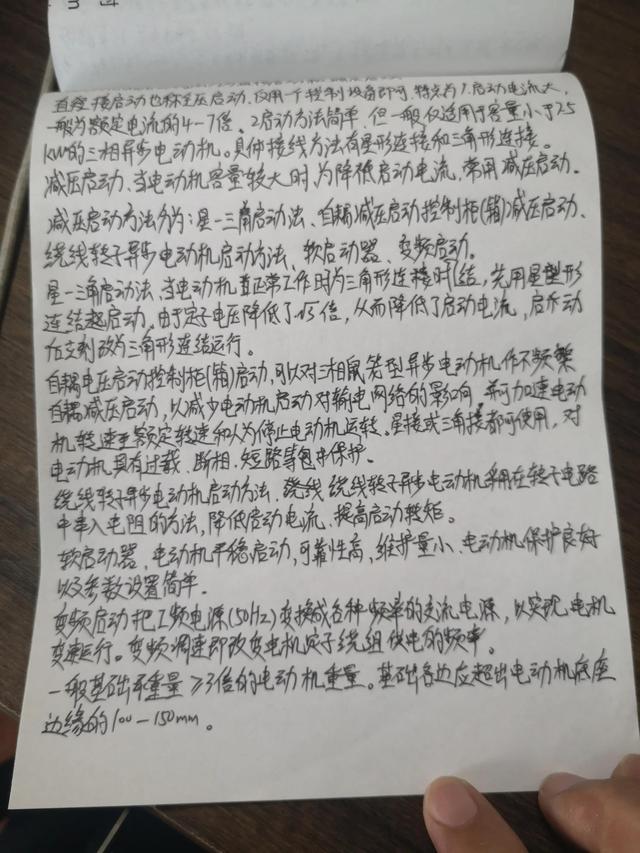 直接接启动也称全压启动。仅用一个控制设备即可。特点为1.启动电流大,
一般为额定电流的4-7倍。2启动方法简单,但一般仅适用于容量小于7.5
KW的三相异步电动机。具体接线方法有星形连接和三角形连接。
减压启动、当电动机容量较大时,为降低启动电流,常用减压启动。
减压启动方法分为:星-三角启动法、自耦减压启动控制柜(箱)减压启动、
绕线转子异步电动机启动方法、软启动器、变频启动。
星-三角启动法、当电动机直正常工作时为三角形连接时结,先用星型形
连结起启动。由于定子电压降低了√3倍,从而降低了启动电流,启动
后立刻改为三角形连结运行。
自耦电压启动控制柜(箱)启动,可以对三相鼠笼型异步电动机作不频繁
自耦减压启动,以减少电动机启动对输电网络的影响,并可加速电动
机转速至额定转速和人为停止电动机运转。星接或三角接都可使用,对
电动机具有过载、断相、短路等保护。
绕线转子异步电动机启动方法、绕线 绕线转子异步电动机采用在转子电路
中串入电阻的方法,降低启动电流、提高启动转矩。
软启动器、电动机平稳启动,可靠性高,维护量小、电动机保护良好
以及参数设置简单.
变频启动把工频电源(50Hz)变换成各种频率的交流电源,以实现电机
变速运行。变频调速即改变电机定子绕组供电的频率。
一般基础重量≥3倍的电动机重量。基础各边应超出电动机底座
边缘的100-150mm。